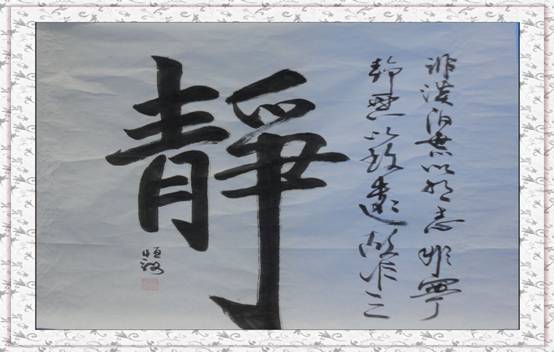 非澹泊無以明志非寧
靜無以致遠故作之
靜